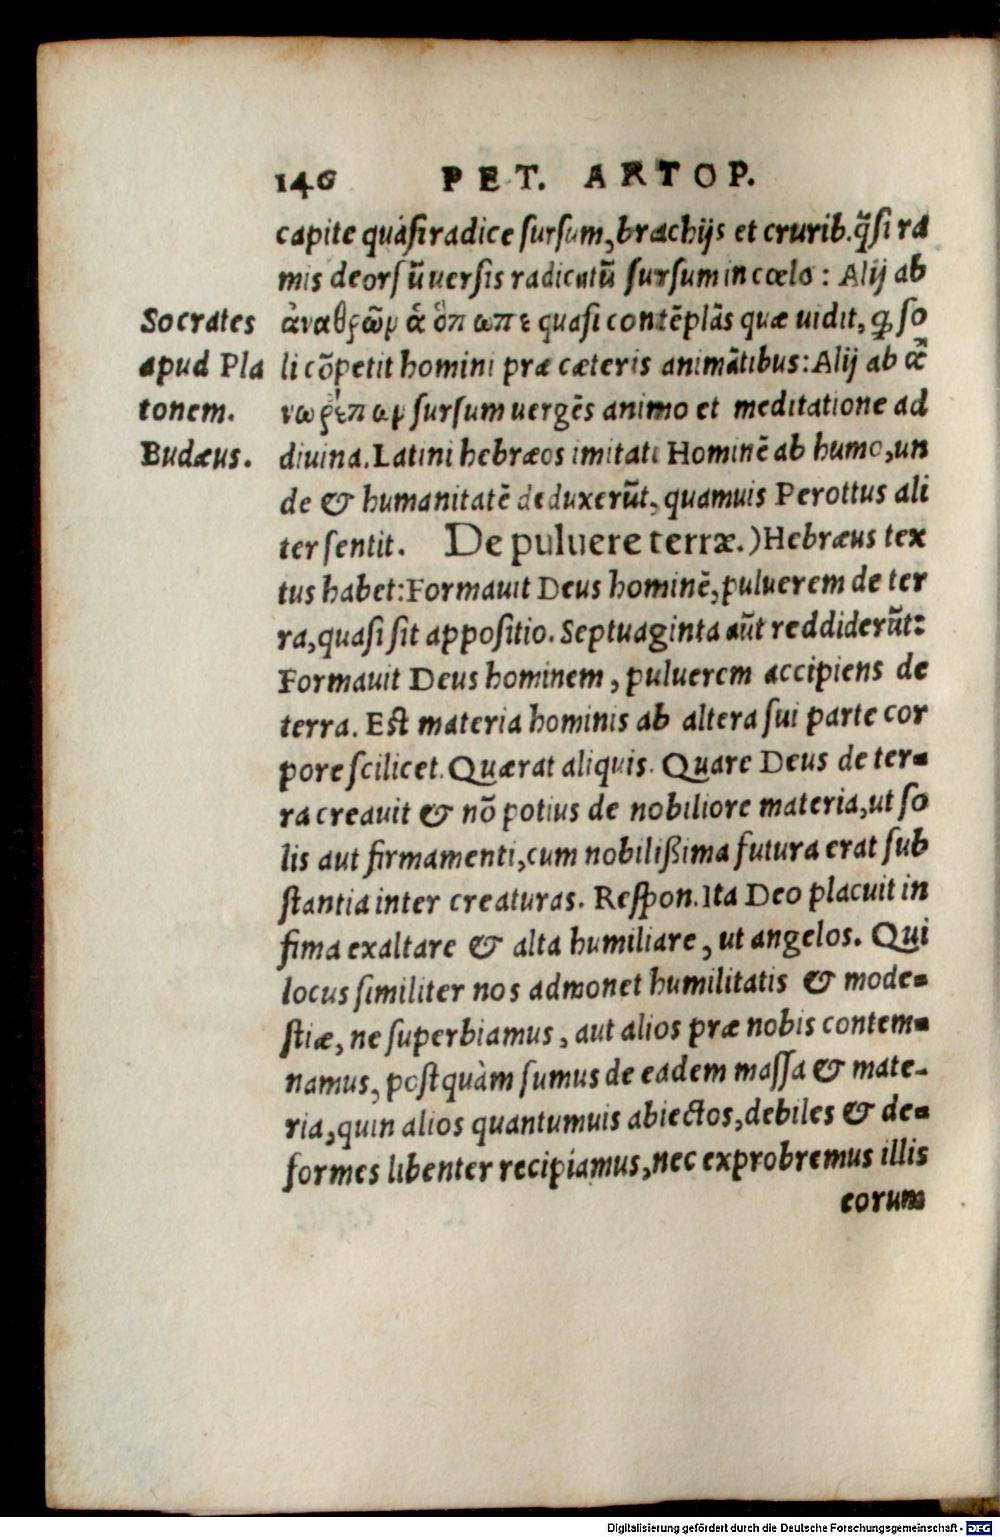 146 PET. ARTOP.
capite quasi radice sursum, brachijs et crurib. q̃si ra
mis deorsũ uersis radicatũ sursum in cœlo: Alij ab
Socrates
apud Pla
tonem.
Budæus.
ἀναθρῶν ἃ ὄπωπε quasi contẽplãs quæ uidit, ꝙ so
li cõpetit homini præ cæteris animãtibus: Alij ab ἄ
νω ῥέπων sursum uergẽs animo et meditatione ad
diuina. Latini hebræos imitati Hominẽ ab humo, un
de & humanitatẽ deduxerũt, quamuis Perottus ali
ter sentit. De puluere terræ.) Hebræus tex
tus habet: Formauit Deus hominẽ, puluerem de ter
ra, quasi sit appositio. Septuaginta aũt reddiderũt:
Formauit Deus hominem, puluerem accipiens de
terra. Est materia hominis ab altera sui parte cor
pore scilicet. Quærat aliquis. Quare Deus de ter-
ra creauit & nõ potius de nobiliore materia, ut so
lis aut firmamenti, cum nobilißima futura erat sub
stantia inter creaturas. Respon. Ita Deo placuit in
fima exaltare & alta humiliare, ut angelos. Qui
locus similiter nos admonet humilitatis & mode-
stiæ, ne superbiamus, aut alios præ nobis contem-
namus, postquàm sumus de eadem massa & mate-
ria, quin alios quantumuis abiectos, debiles & de-
formes libenter recipiamus, nec exprobremus illis
eorum
Digitalisierung gefördert durch die Deutsche Forschungsgemeinschaft - DFG